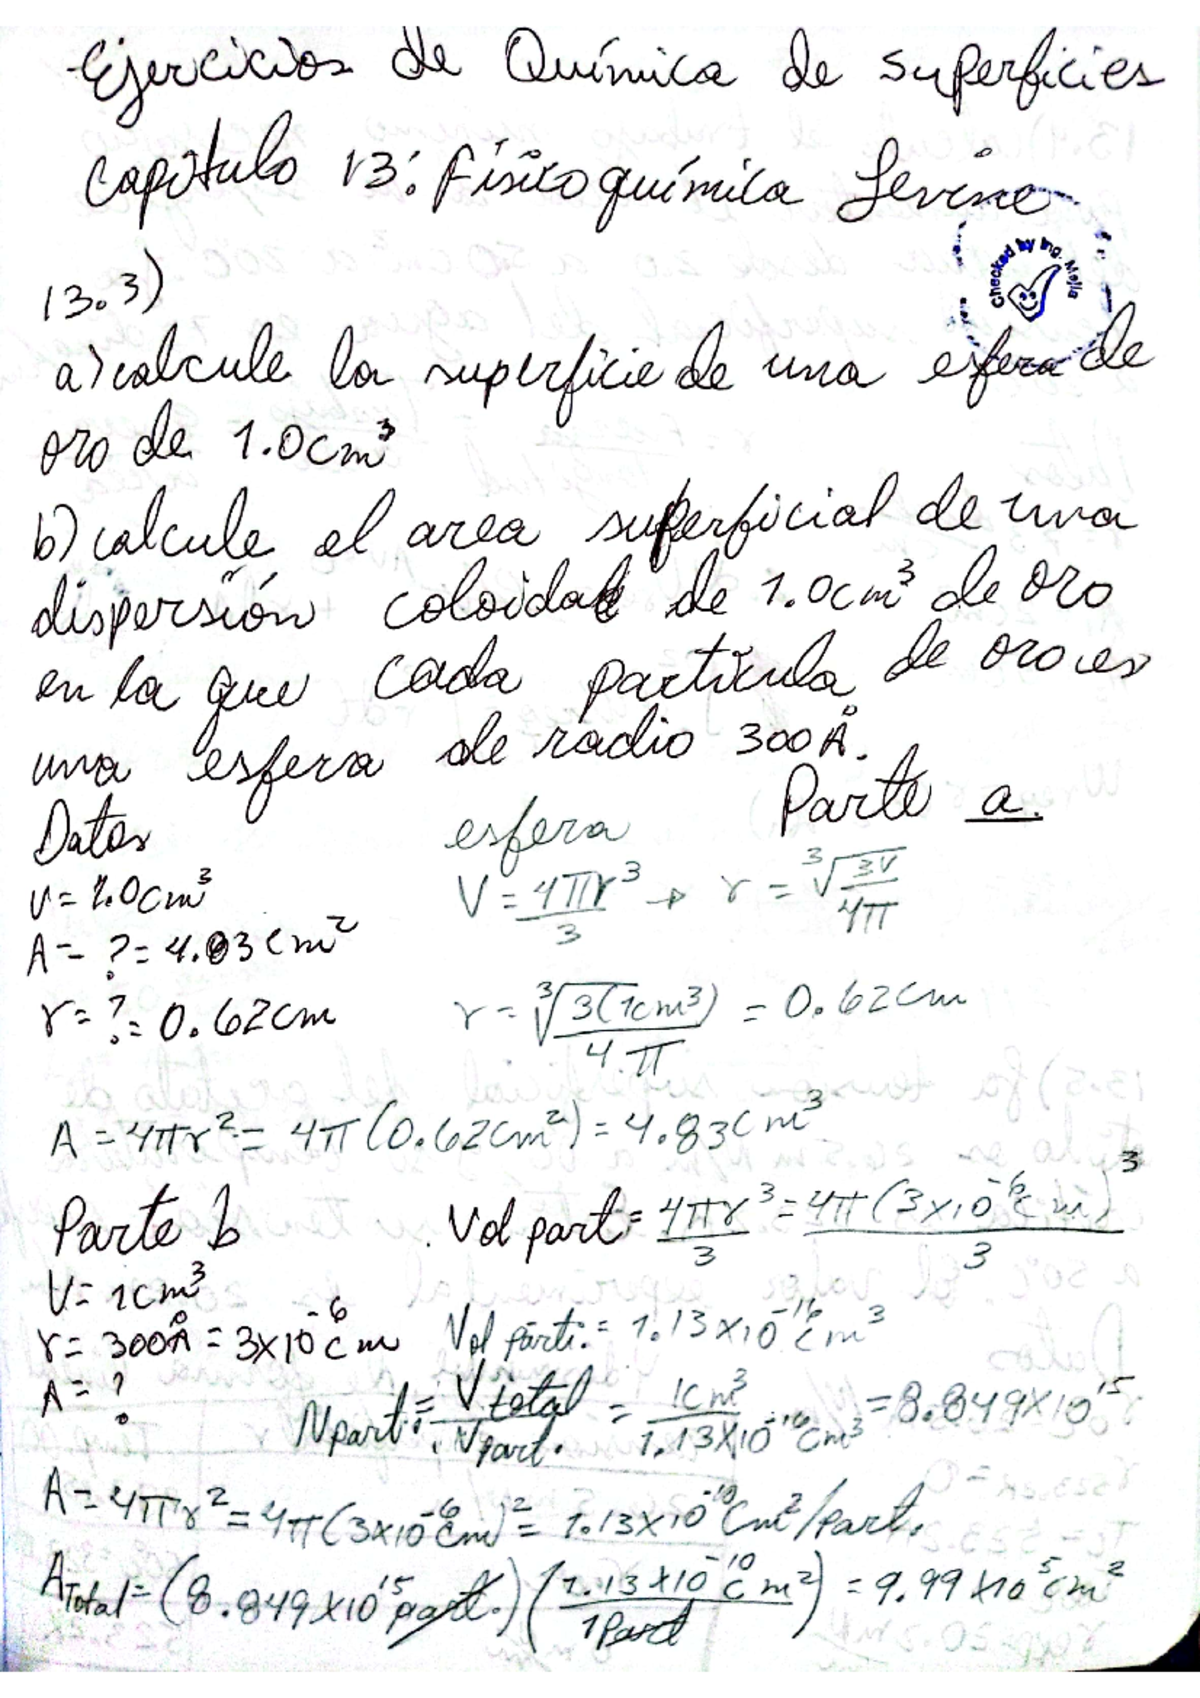 Ejercicios de Química de superficies
Capítulo 13: Fisicoquímica Levine
Checked by Ing. Mejia
13.3)
a) calcule la superficie de una esfera de
oro de 1.0cm³
b) calcule el area superficial de una
dispersión coloidal de 1.0cm³ de oro
en la que cada partícula de oro es
una esfera de radio 300Å.
Parte a.
Datos esfera
V = 1.0cm³ V = 4πr³/3 → r = ∛(3V/4π)
A = ? = 4.83cm²
r = ? = 0.62cm r = ∛(3(1cm³)/4.π) = 0.62cm
A = 4πr² = 4π(0.62cm²) = 4.83cm³
Parte b Vol part = 4πr³/3 = 4π(3x10⁻⁶cm)³/3
V = 1cm³
r = 300Å = 3x10⁻⁶cm Vol parti. = 1.13x10⁻¹⁶cm³
A = ? Npart. = Vtotal/Npart. = 1cm³/1.13x10⁻¹⁶cm³ = 8.849x10¹⁵
A = 4πr² = 4π(3x10⁻⁶cm)² = 1.13x10⁻¹⁰cm²/part.
ATotal = (8.849x10¹⁵part.)(1.13x10⁻¹⁰cm²/1Part) = 9.99x10⁵cm²